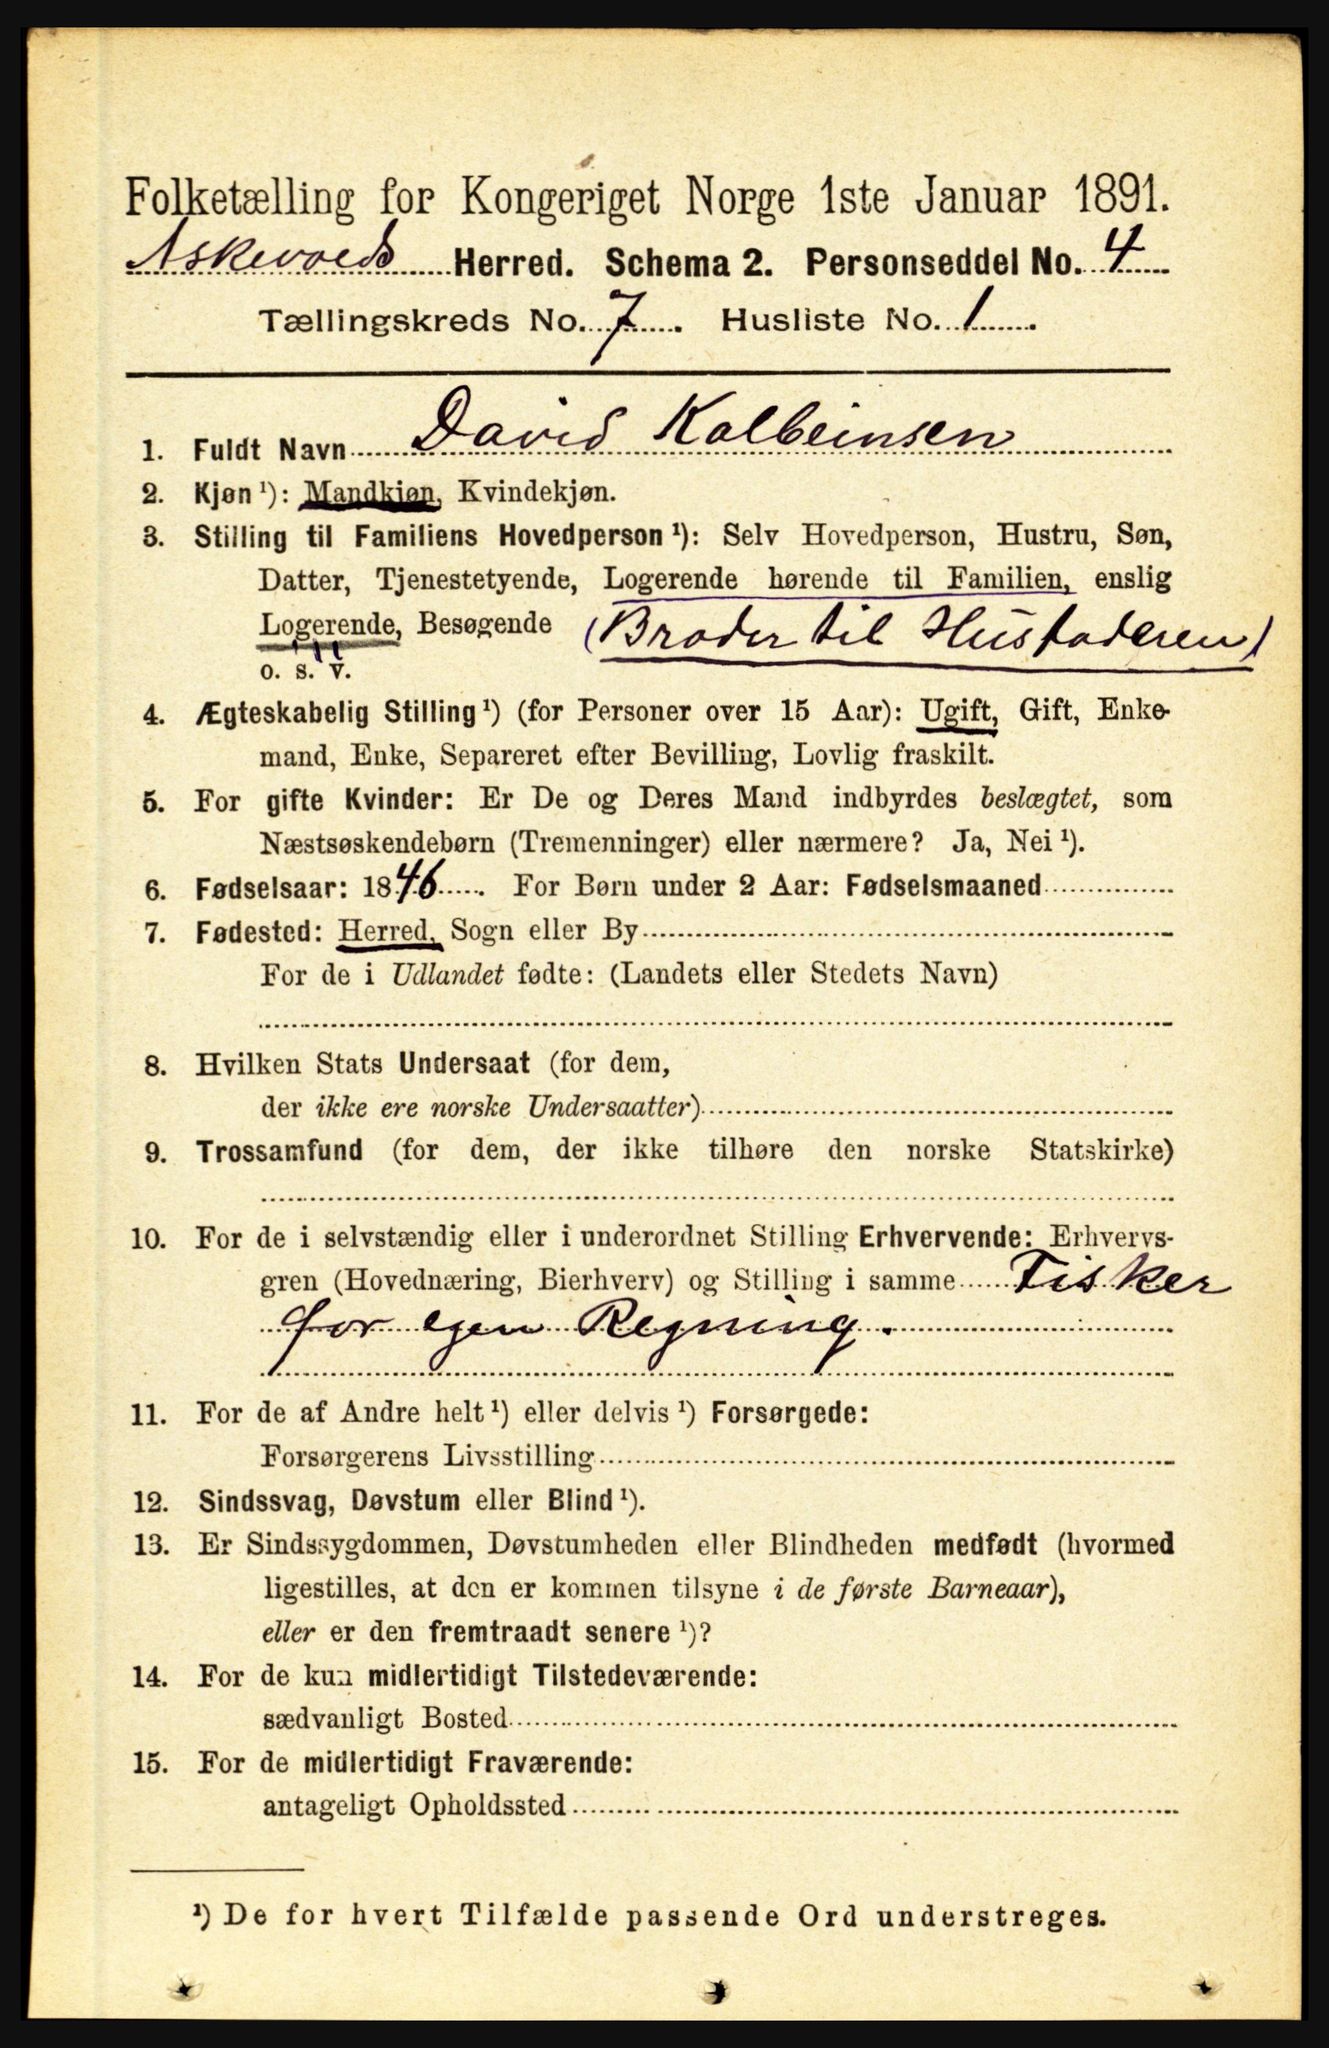 Folketælling for Kongeriget Norge 1ste Januar 1891.
Askevolds Herred. Schema 2. Personseddel No. 4
Tællingskreds No. 7. Husliste No. 1.
1. Fuldt Navn David Kolbeinsen
2. Kjøn ¹): Mandkjøn, Kvindekjøn.
3. Stilling til Familiens Hovedperson ¹): Selv Hovedperson, Hustru, Søn,
Datter, Tjenestetyende, Logerende hørende til Familien, enslig
Logerende, Besøgende (Broder til Husfaderen)
o. s. v.
4. Ægteskabelig Stilling ¹) (for Personer over 15 Aar): Ugift, Gift, Enke-
mand, Enke, Separeret efter Bevilling, Lovlig fraskilt.
5. For gifte Kvinder: Er De og Deres Mand indbyrdes beslægtet, som
Næstsøskendebørn (Tremenninger) eller nærmere? Ja, Nei ¹).
6. Fødselsaar: 1846. For Børn under 2 Aar: Fødselsmaaned
7. Fødested: Herred, Sogn eller By
For de i Udlandet fødte: (Landets eller Stedets Navn)
8. Hvilken Stats Undersaat (for dem,
der ikke ere norske Undersaatter)
9. Trossamfund (for dem, der ikke tilhøre den norske Statskirke)
10. For de i selvstændig eller i underordnet Stilling Erhvervende: Erhvervs-
gren (Hovednæring, Bierhverv) og Stilling i samme Fisker
for egen Regning.
11. For de af Andre helt ¹) eller delvis ¹) Forsørgede:
Forsørgerens Livsstilling
12. Sindssvag, Døvstum eller Blind ¹).
13. Er Sindssygdommen, Døvstumheden eller Blindheden medfødt (hvormed
ligestilles, at den er kommen tilsyne i de første Barneaar),
eller er den fremtraadt senere ¹)?
14. For de kun midlertidigt Tilstedeværende:
sædvanligt Bosted
15. For de midlertidigt Fraværende:
antageligt Opholdssted
¹) De for hvert Tilfælde passende Ord understreges.